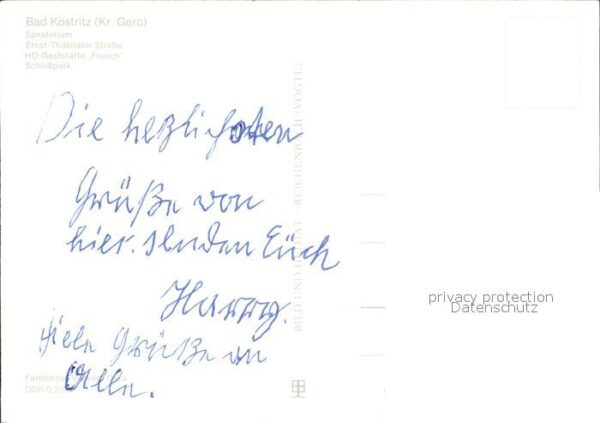 Bad Köstritz (Kr. Gera)
Sanatorium
Ernst-Thälmann-Straße
HO-Gaststätte „Frosch“
Schloßpark
Die hezlichsten
Grüße von
hier. senden Euch
Harry.
Viele Grüße an
Alle.
Farbfotos
DDR 0.20
BILD UND HEIMAT · REICHENBACH (VOGTL)
privacy protection
Datenschutz